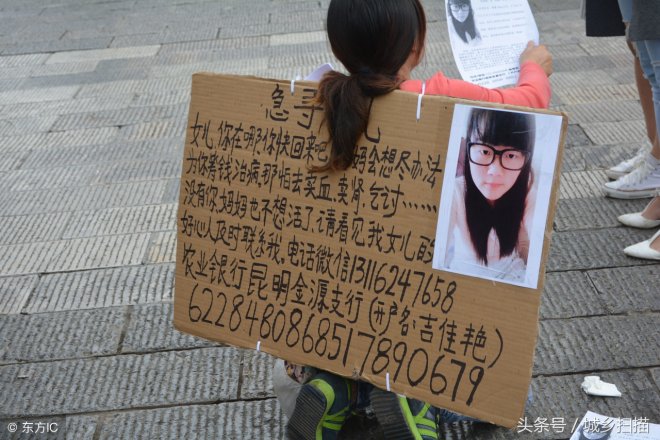 急寻 儿
女儿,你在哪?你快回来吧 妈会想尽办法
为你筹钱治病,那怕去卖血,卖肾,乞讨……
没有你,妈妈也不想活了,请看见我女儿的
好心人及时联系我,电话微信13116247658
农业银行昆明金源支行(开户名:吉佳艳)
6228480868517890679
© 东方IC
头条号 / 城乡扫描